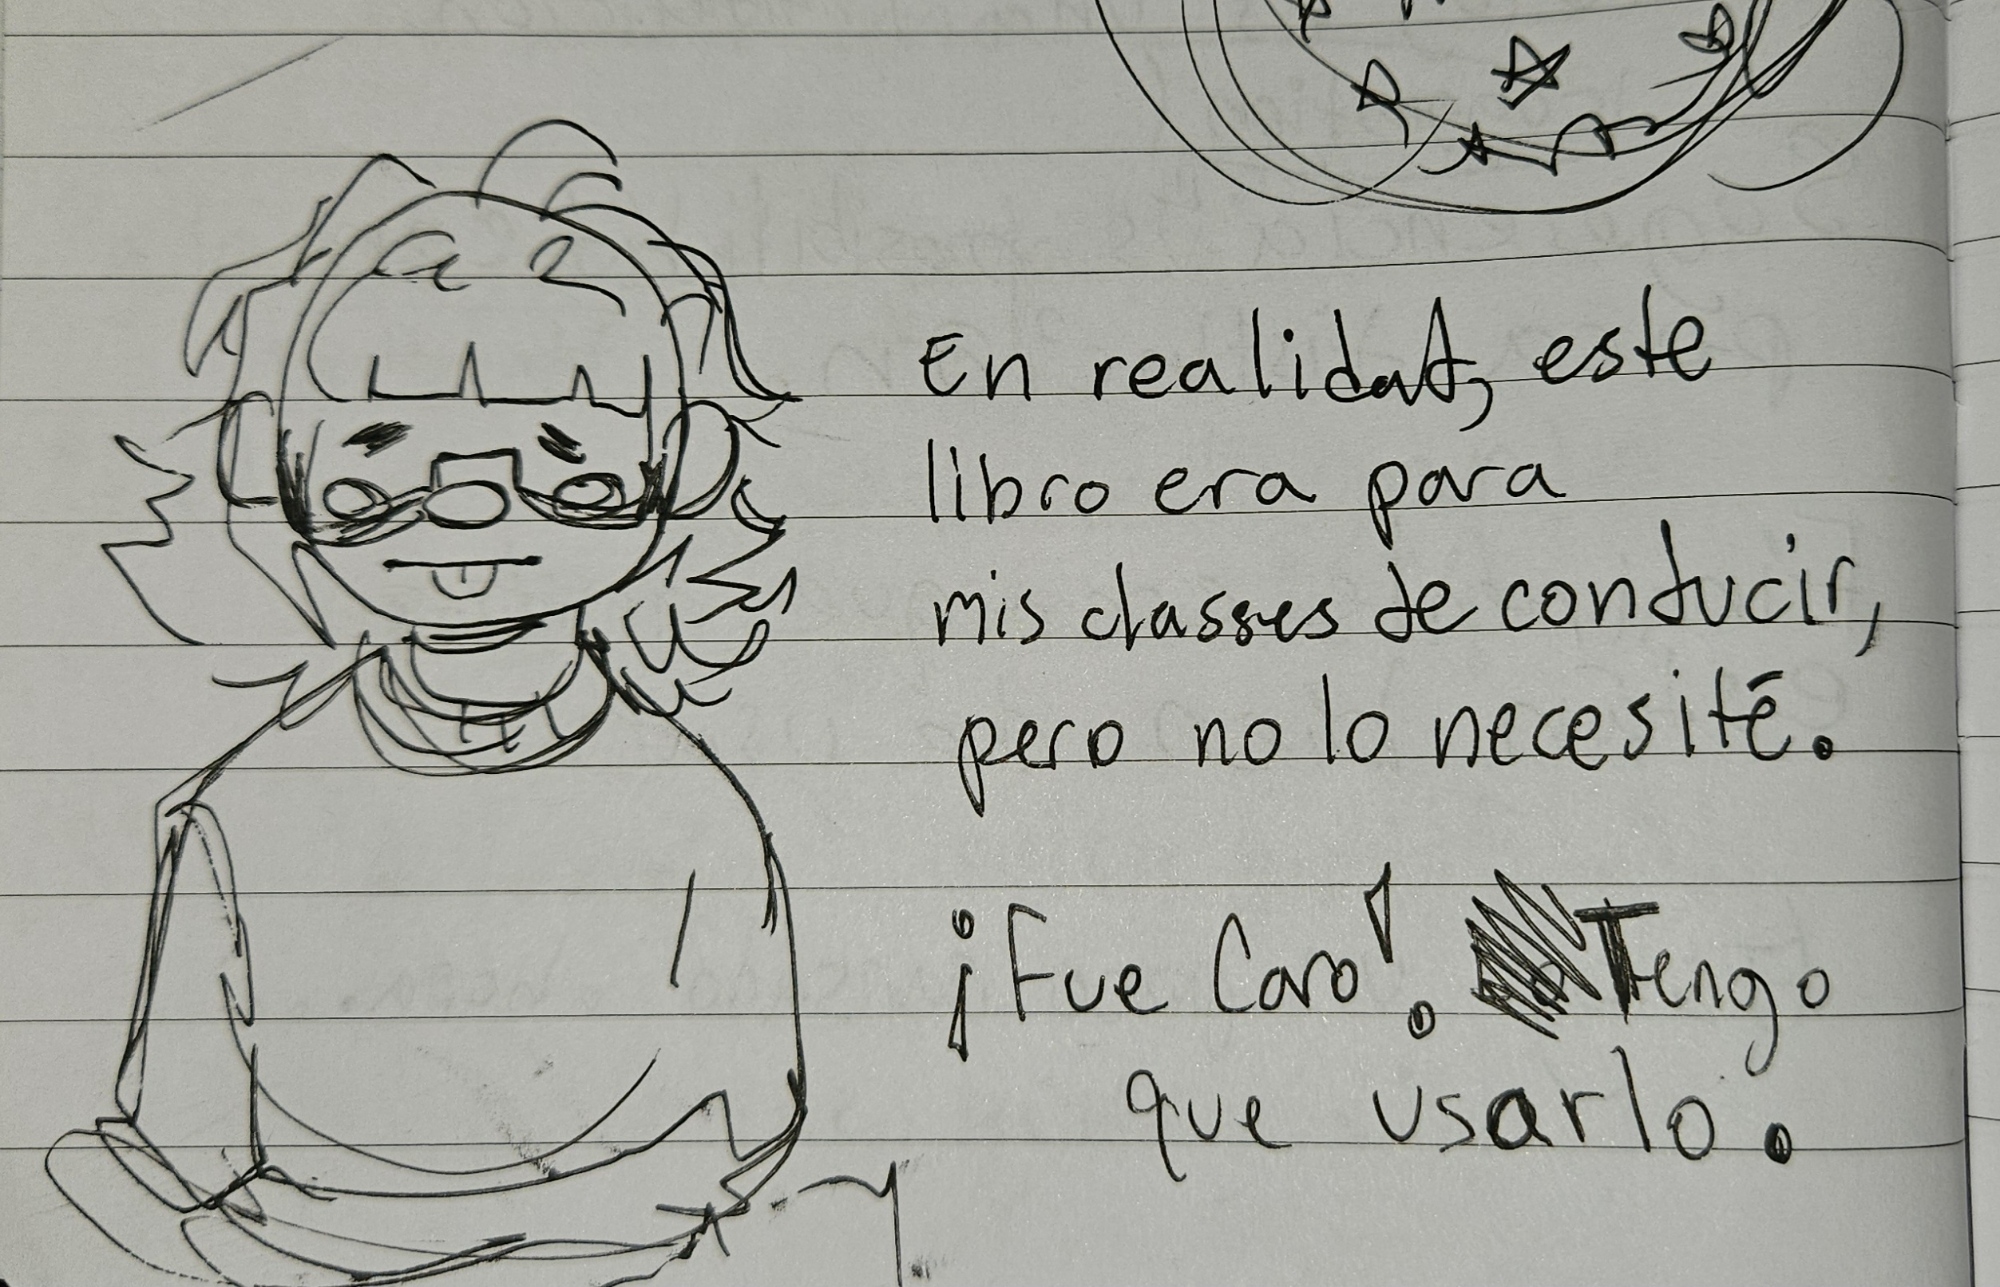 En realidad, este
libro era para
mis classes de conducir,
pero no lo necesité.
¡Fue Caro! Tengo
que usarlo.